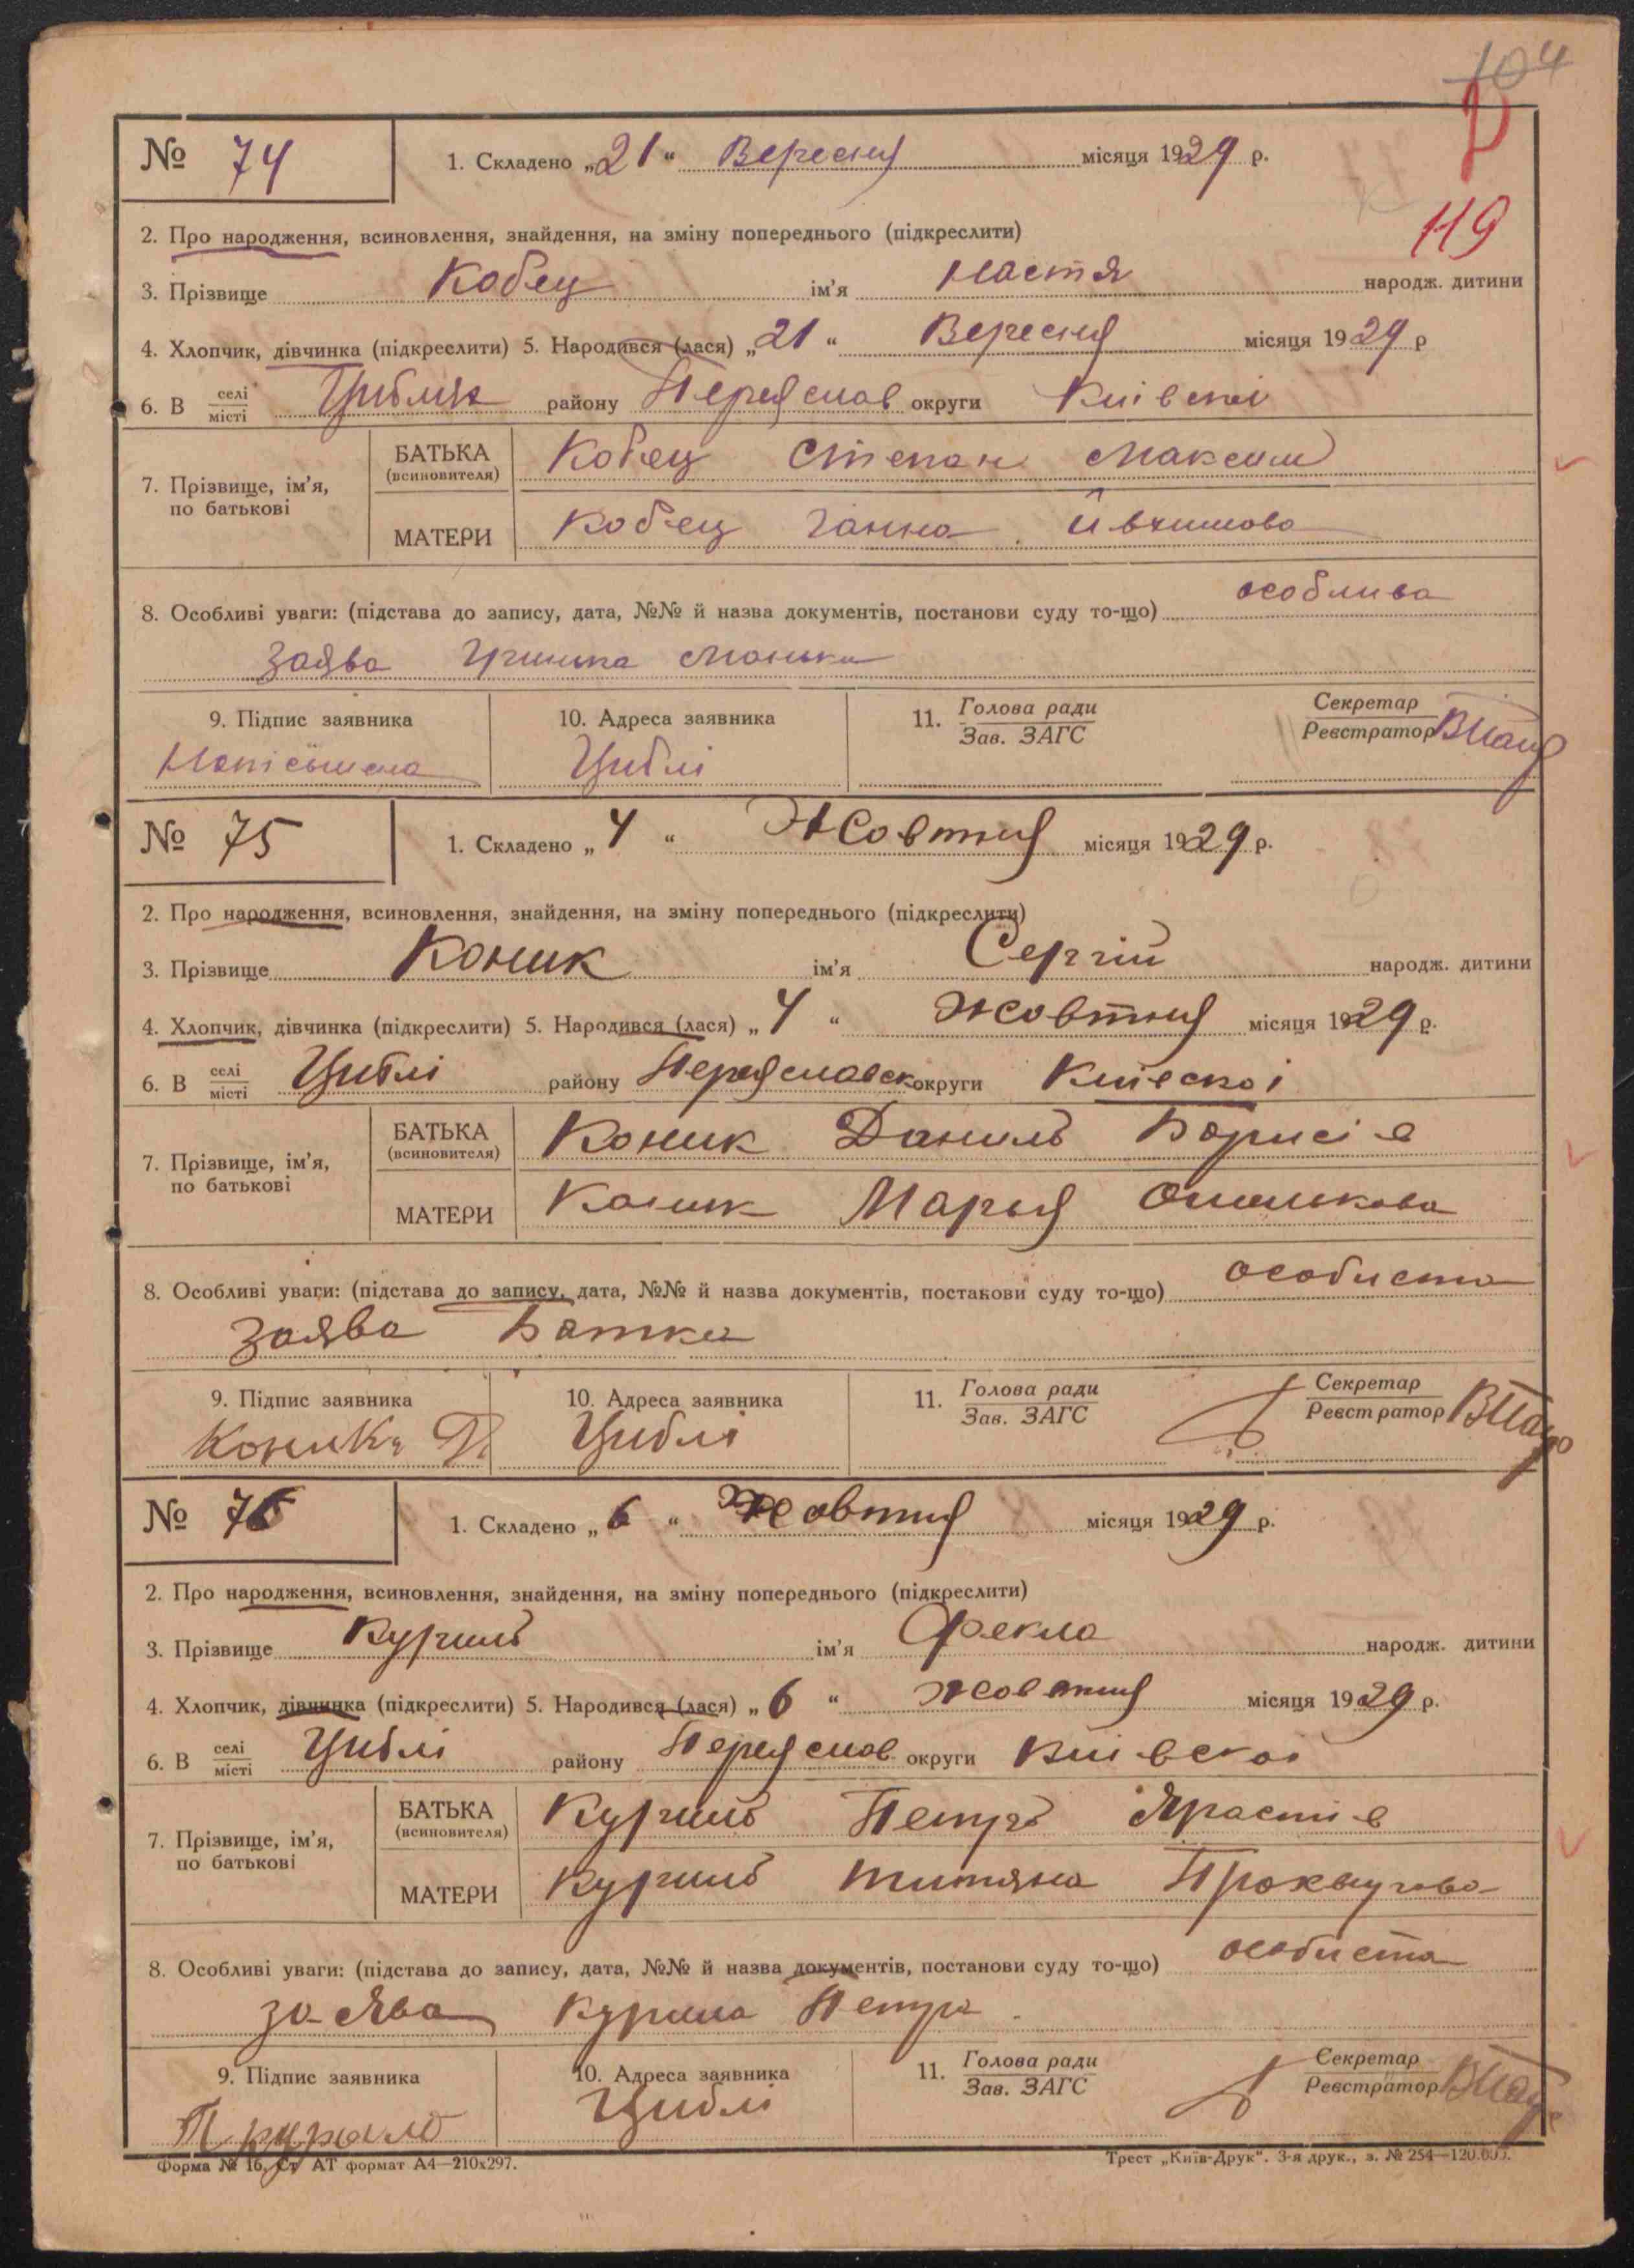 104
119
№ 74
1. Складено „21“ Вересня місяця 1929 р.
2. Про народження, всиновлення, знайдення, на зміну попереднього (підкреслити)
3. Прізвище Кобец ім'я Настя народж. дитини
4. Хлопчик, дівчинка (підкреслити) 5. Народився (лася) „21“ Вересня місяця 1929 р
6. В селі місті Циблях району Переяслав округи Київскої
7. Прізвище, ім'я, по батькові
БАТЬКА (всиновителя) Кобец Степан Максим
МАТЕРИ Кобец Ганна
8. Особливі уваги: (підстава до запису, дата, №№ й назва документів, постанови суду то-що) особлива
заява
9. Підпис заявника 10. Адреса заявника 11. Голова ради Зав. ЗАГС Секретар Реєстратор
Циблі
№ 75
1. Складено „4“ Жовтня місяця 1929 р.
2. Про народження, всиновлення, знайдення, на зміну попереднього (підкреслити)
3. Прізвище Коник ім'я Сергій народж. дитини
4. Хлопчик, дівчинка (підкреслити) 5. Народився (лася) „4“ Жовтня місяця 1929 р.
6. В селі місті Циблі району Переяславск округи Київскої
7. Прізвище, ім'я, по батькові
БАТЬКА (всиновителя) Коник Данилъ Борисів
МАТЕРИ Коник Марья
8. Особливі уваги: (підстава до запису, дата, №№ й назва документів, постанови суду то-що) особиста
заява Батка
9. Підпис заявника 10. Адреса заявника 11. Голова ради Зав. ЗАГС Секретар Реєстратор
Коник Циблі
№ 76
1. Складено „6“ Жовтня місяця 1929 р.
2. Про народження, всиновлення, знайдення, на зміну попереднього (підкреслити)
3. Прізвище Курилъ ім'я Фекла народж. дитини
4. Хлопчик, дівчинка (підкреслити) 5. Народився (лася) „6“ Жовтня місяця 1929 р.
6. В селі місті Циблі району Переяслав округи Київскої
7. Прізвище, ім'я, по батькові
БАТЬКА (всиновителя) Курилъ Петръ
МАТЕРИ Курилъ Титяна
8. Особливі уваги: (підстава до запису, дата, №№ й назва документів, постанови суду то-що) особиста
заява Курила Петра
9. Підпис заявника 10. Адреса заявника 11. Голова ради Зав. ЗАГС Секретар Реєстратор
Циблі
Форма № 16. Ст АТ формат А4—210х297. Трест „Київ-Друк“. 3-я друк., з. № 254—120.000.